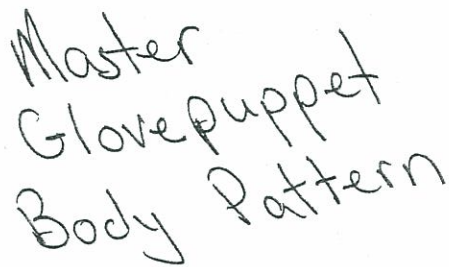 Master
Glovepuppet
Body Pattern